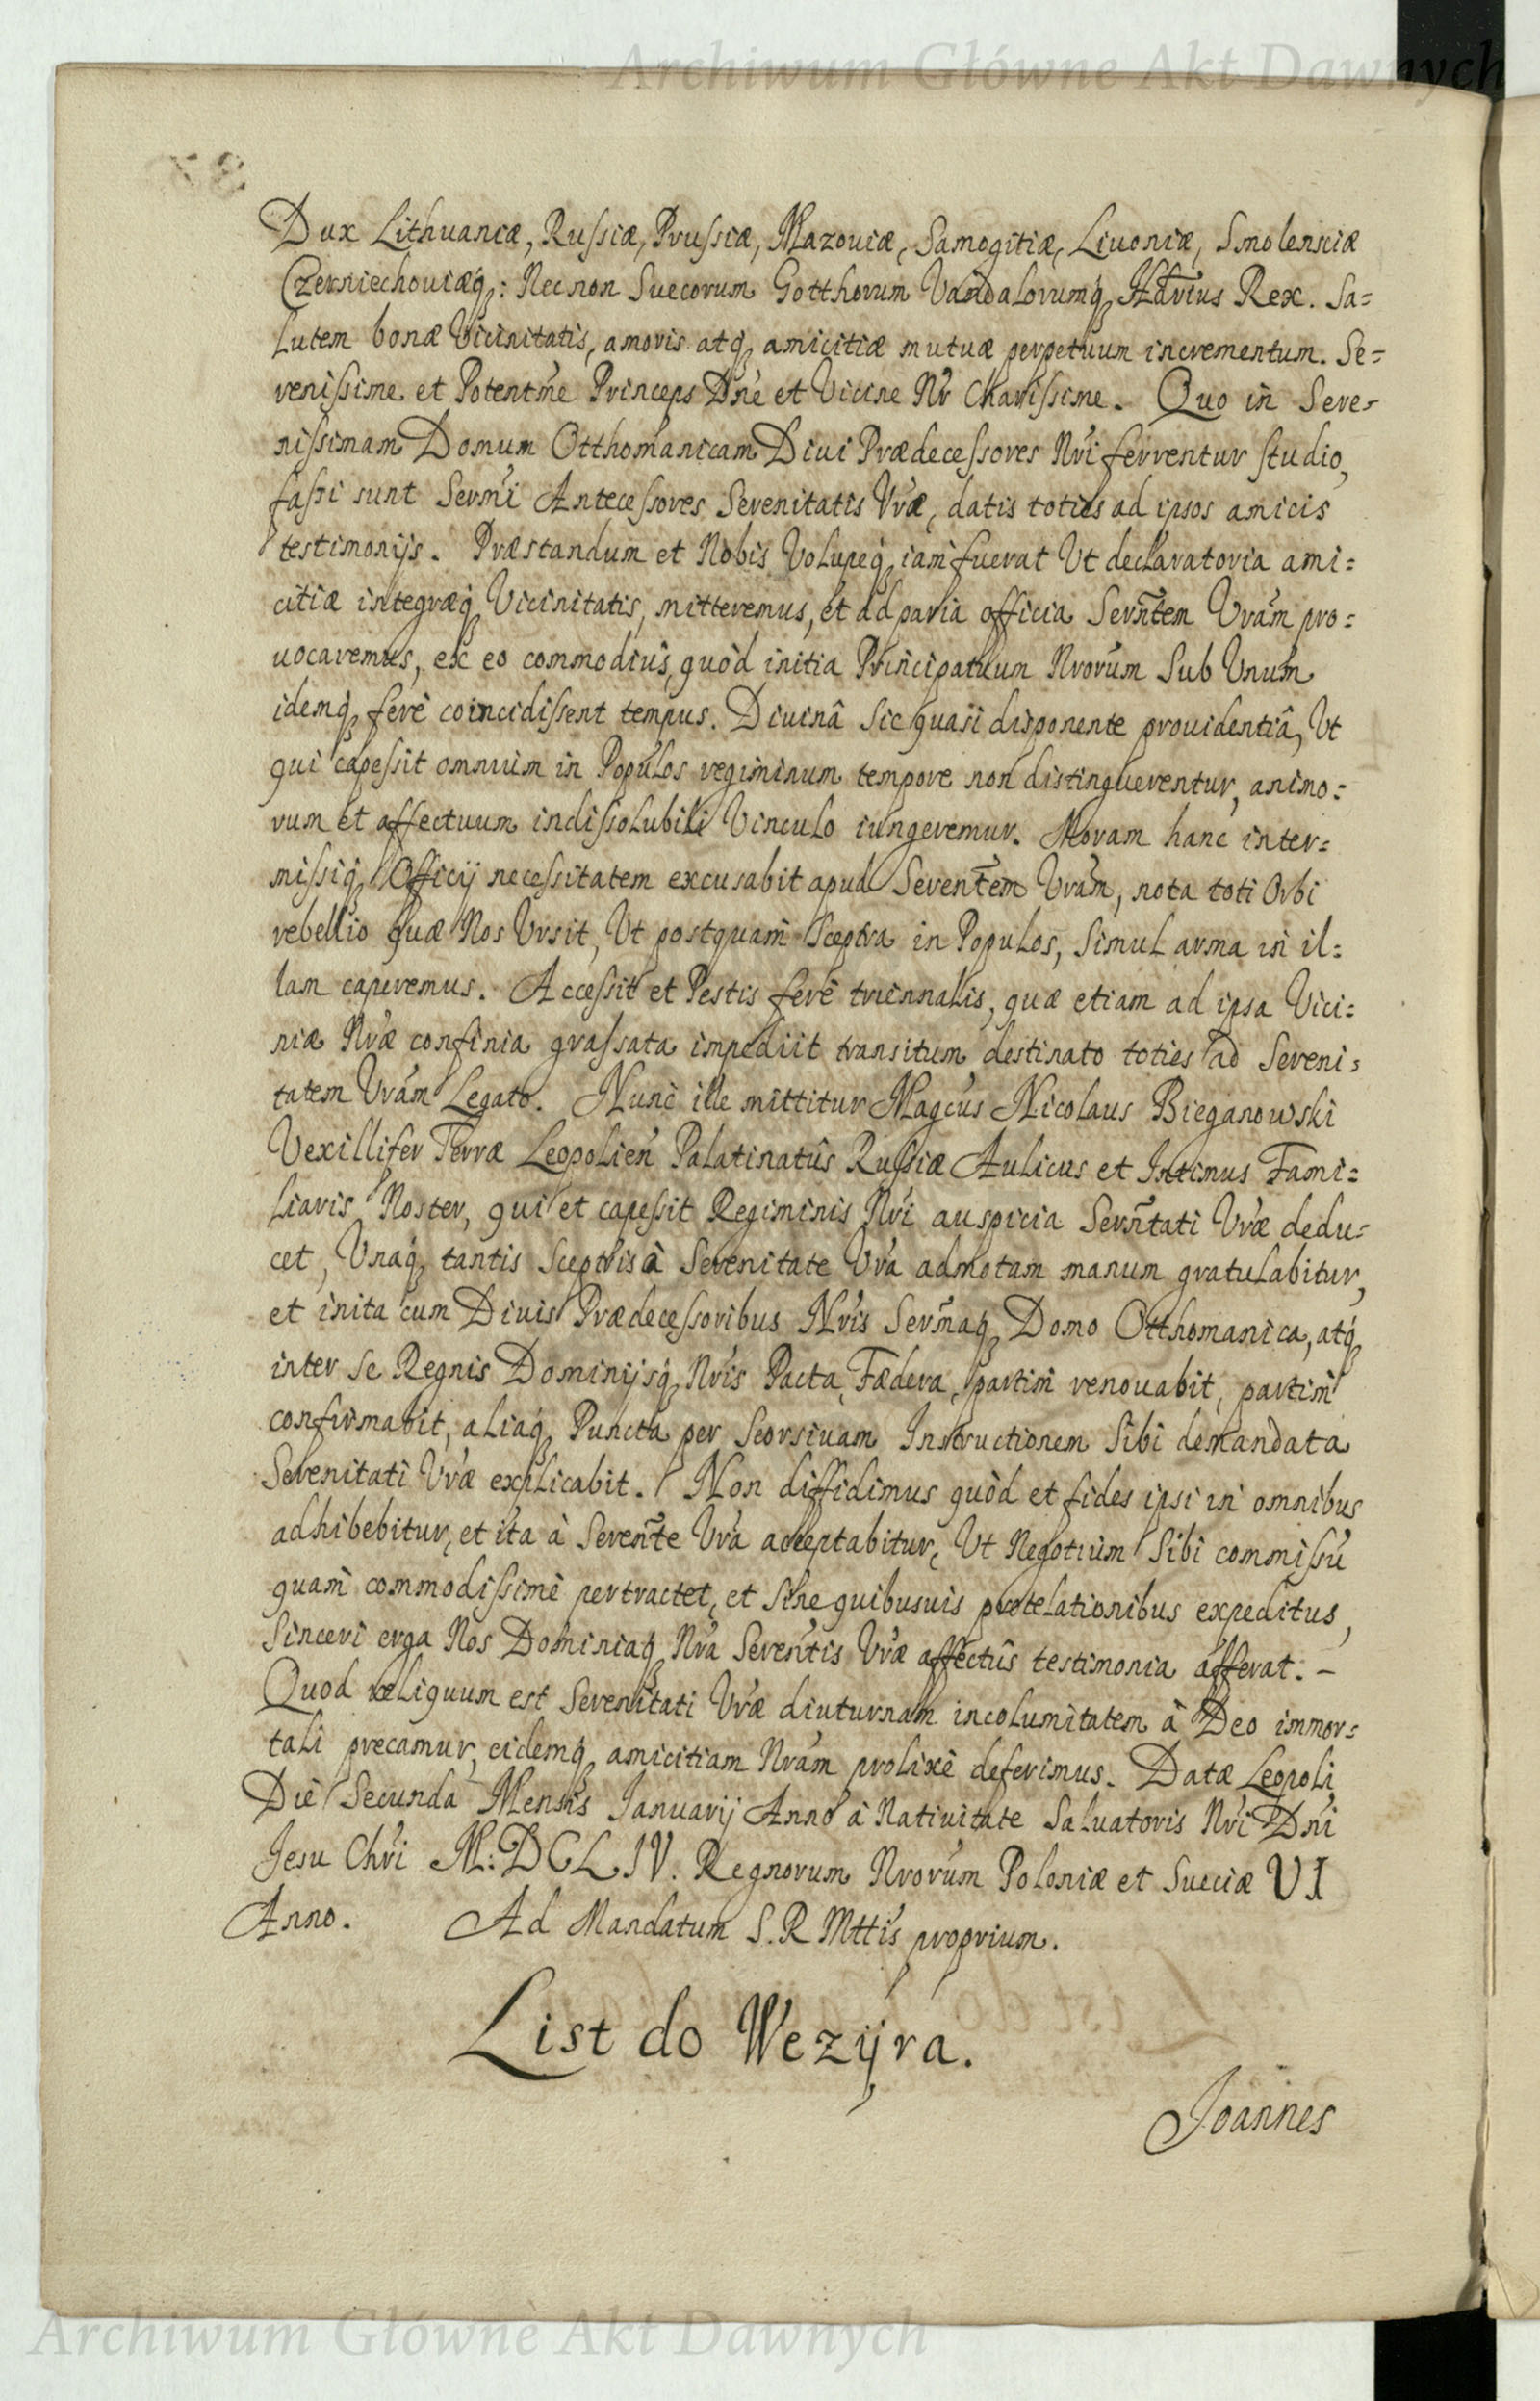 Archiwum Główne Akt Dawnych
Dux Lithuaniæ, Russiæ, Prussiæ, Mazouiæ, Samogitiæ, Liuoniæ, Smolensciæ
Czerniechouiæq́;: Necnon Suecorum Gotthorum Vandalorumq́; Hdrius Rex. Sa=
lutem bonæ Vicinitatis, amoris atq́; amicitiæ mutuæ perpetuum incrementum. Se=
renissime et Potentm̃e Princeps Dñe et Vicine Nr̃ Charissime. Quo in Sere=
nissimam Domum Otthomanicam Diui Prædecessores Nri ferrentur studio,
fassi sunt Sermi Antecessores Serenitatis Vræ, datis toties ad ipsos amicis
testimonijs. Præstandum et Nobis Volupeq́; iam fuerat Vt declaratoria ami=
citiæ integræq́; Vicinitatis, mitteremus, et ad paria officia Serñtem Vram pro=
uocaremus, ex eo commodius, quòd initia Principatuum Nrorum Sub Unum
idemq́; ferè coincidissent tempus. Diuinâ Sic quasi disponente prouidentiâ, Vt
qui capessit omnium in Populos regiminum tempore non distingueremtur, animo=
rum et affectuum indissolubili Vinculo iungeremur. Moram hanc inter=
missiq́; Officij necessitatem excusabit apud Serentem̃ Vram, nota toti Orbi
rebellio quæ Nos Vrsit, Vt postquam Sceptra in Populos, Simul arma in il=
lam caperemus. Accessit et Pestis ferè triennalis, quæ etiam ad ipsa Vici=
niæ Nræ confinia grassata impediit transitum destinato toties ad Sereni=
tatem Vram Legato. Nunc ille mittitur Magcus Nicolaus Bieganowski
Vexillifer Terræ Leopolień Palatinatûs Russiæ Aulicus et Intimus Fami=
liaris Noster, qui et capessit Regiminis Nri auspicia Serñtati Vræ dedu=
cet, Vnaq́; tantis Sceptris à Serenitate Vra admotam manum gratulabitur,
et inita cum Diuis Prædecessoribus Nris Serm̃aq́; Domo Otthomanica, atq́;
inter se Regnis Dominijsq́; Nris Pacta, Fædera, partim renouabit, partim
confirmabit, aliaq́; Puncta per Seorsiuam Instructionem Sibi demandata
Serenitati Vræ explicabit. Non diffidimus quòd et fides ipsi in omnibus
adhibebitur, et ita à Serenťe Vra acceptabitur, Vt Negotium Sibi commissũ
quam commodissimè pertractet, et Sine quibusuis protelationibus expeditus,
Sinceri erga Nos Dominiaq́; Nra Serentis Vræ affectûs testimonia afferat. –
Quod reliquum est Serenitati Vræ diuturnam incolumitatem à Deo immor=
tali precamur, eidemq́; amicitiam Nram prolixè deferimus. Datæ Leopoli
Die Secunda Mensis Ianuarij Anno à Natiuitate Saluatoris Nri Dñi
Jesu Chri M:DCLIV. Regnorum Nrorum Poloniæ et Sueciæ VI
Anno. Ad Mandatum S.R Mttis proprium.
List do Wezÿra.
Joannes
Archiwum Główne Akt Dawnych